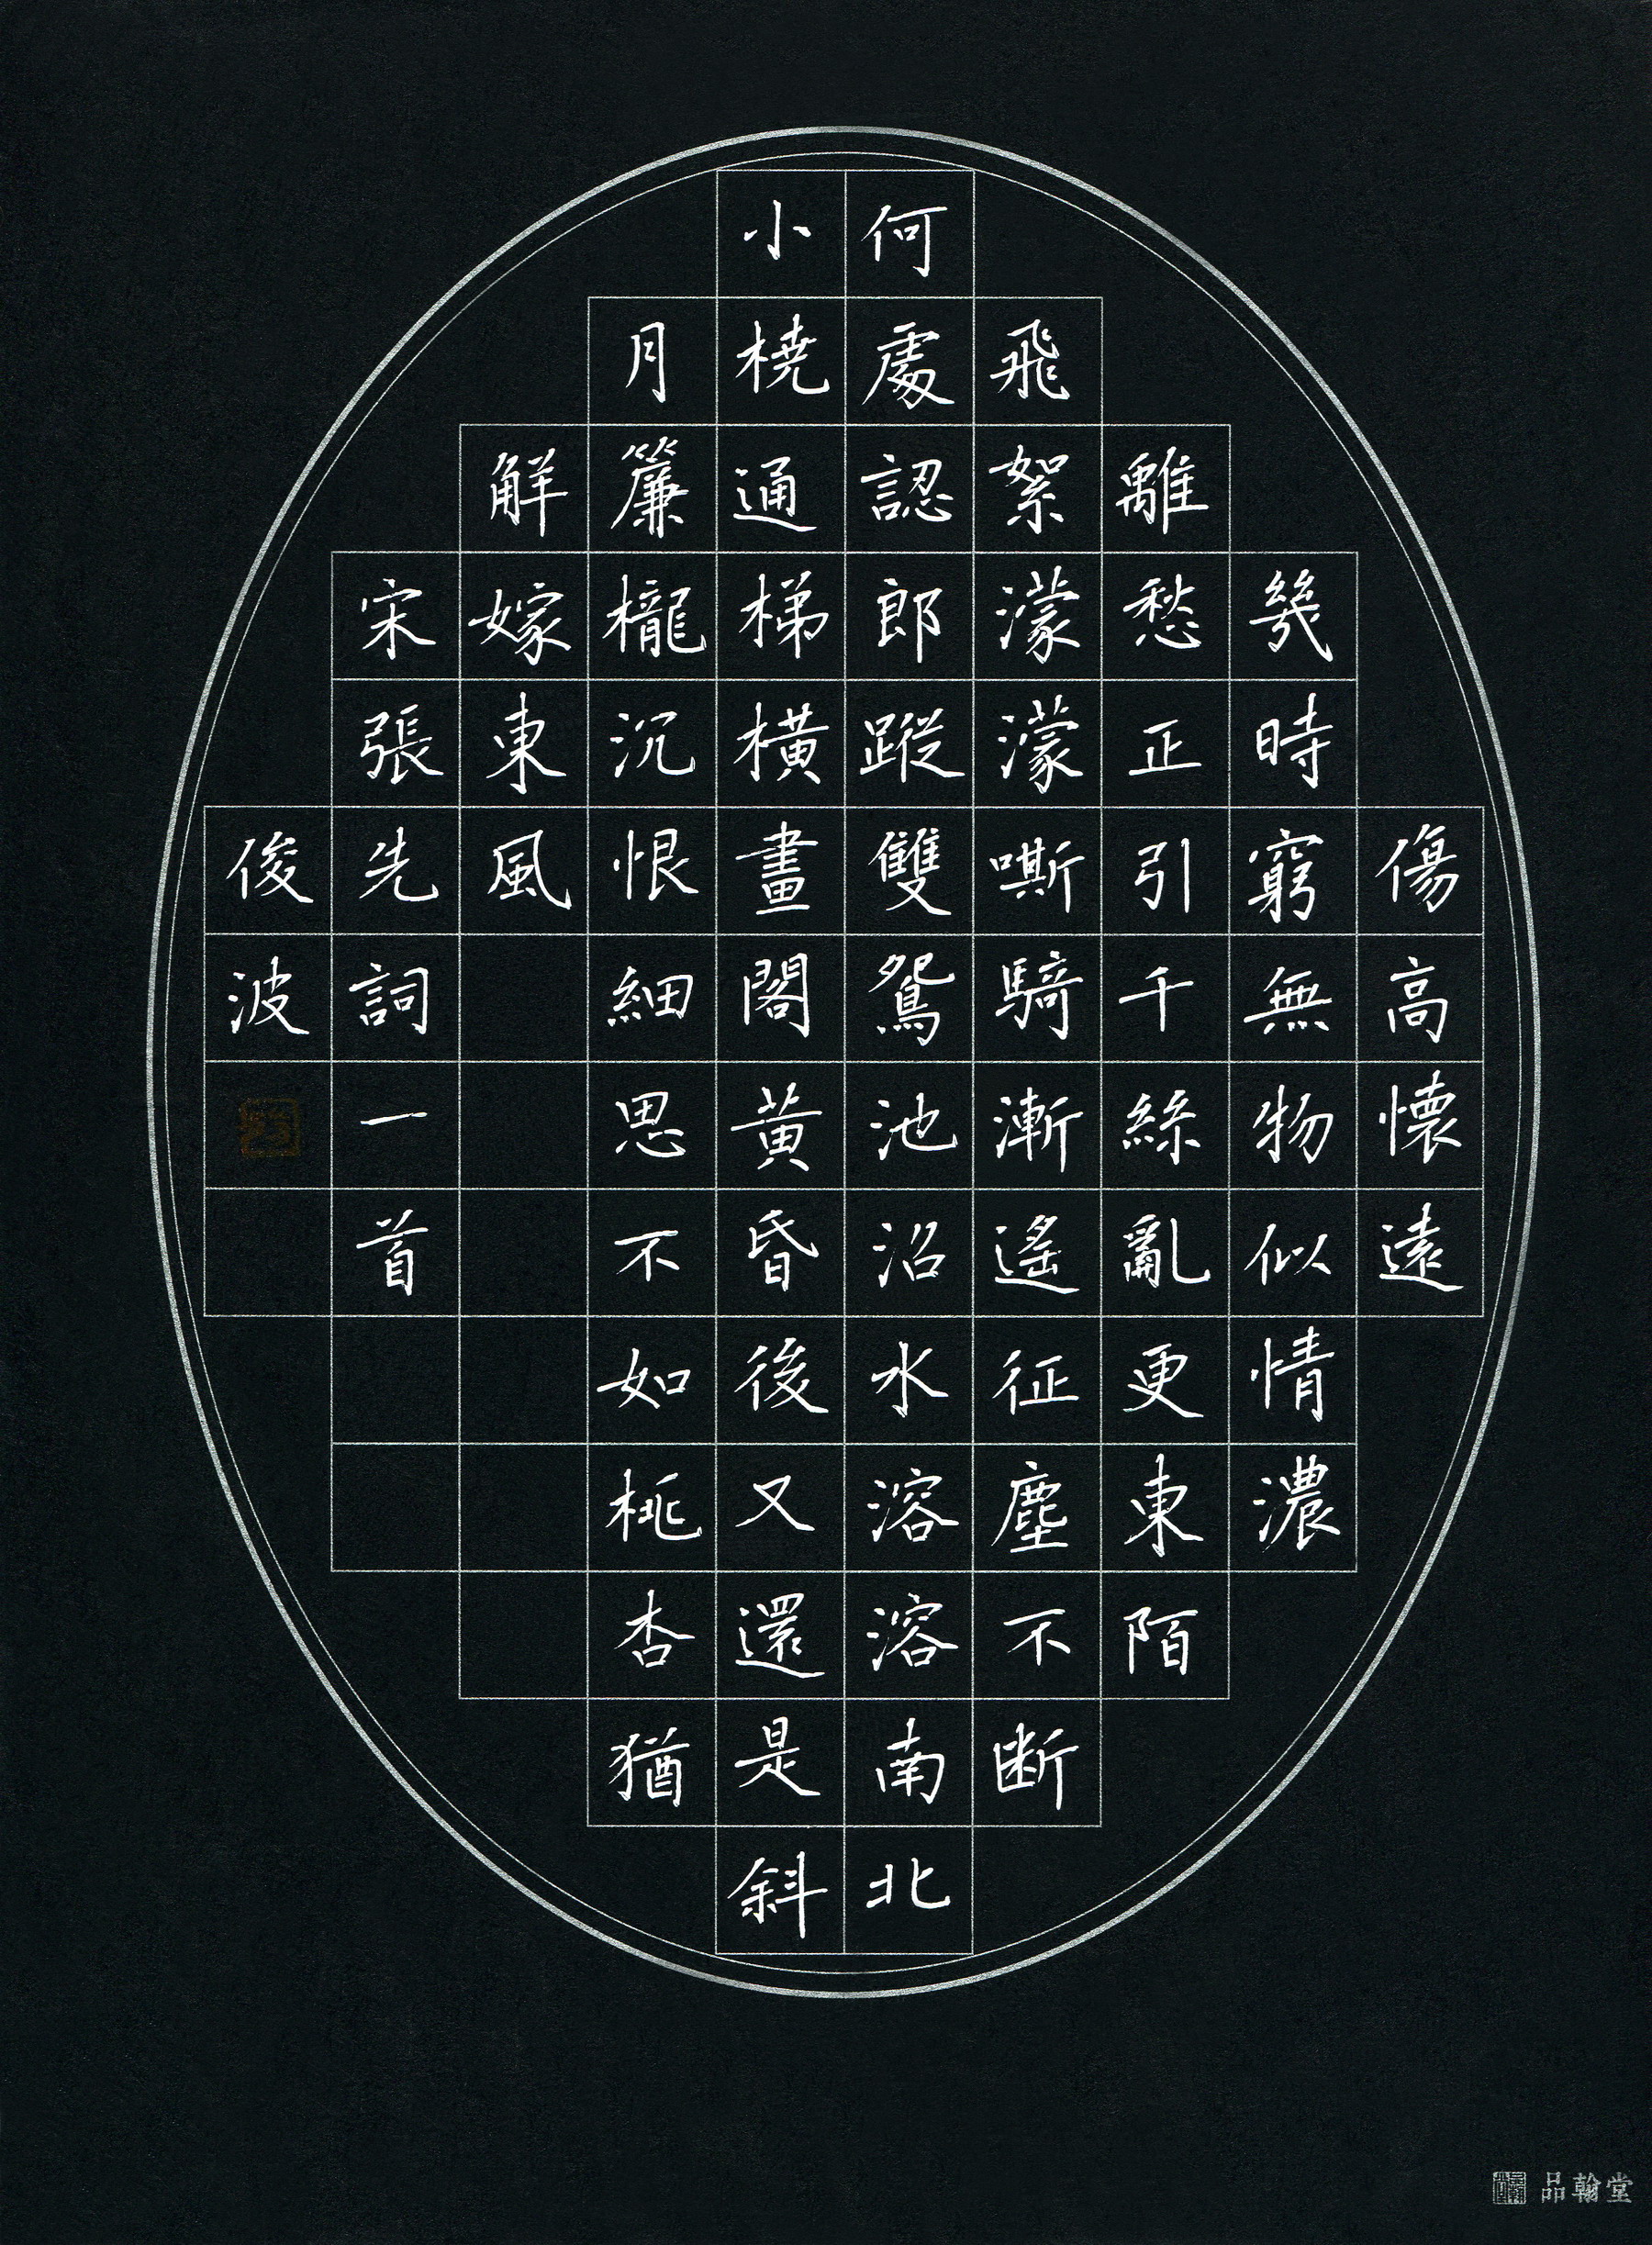 傷高懷遠
幾時窮無物似情濃
離愁正引千絲亂更東陌
飛絮濛濛嘶騎漸遙征塵不断
何處認郎蹤雙鴛池沼水溶溶南北
小橈通梯橫畫閣黃昏後又還是斜
月簾櫳沉恨細思不如桃杏猶
解嫁東風
宋張先詞一首
俊波
品翰堂